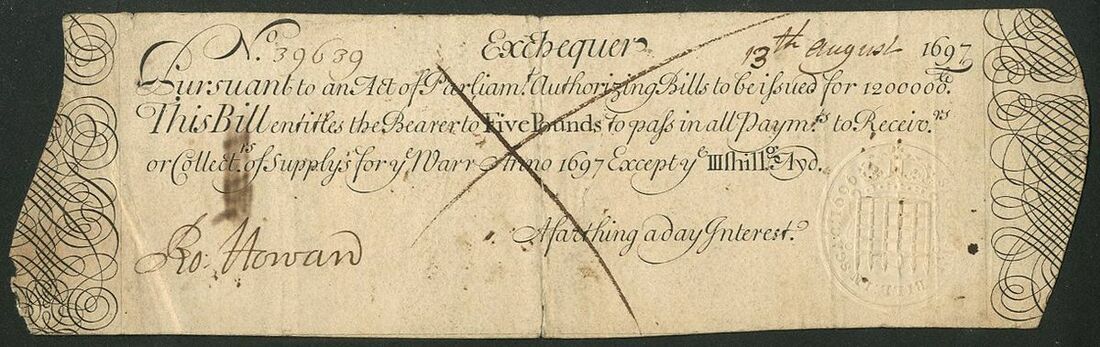 No 39639 Exchequer 13th august 1697
Pursuant to an Act of Parliamt. Authorizing Bills to be issued for 1200000.
This Bill entitles the Bearer to Five Pounds to pass in all Paymts. to Receivrs
or Collectrs of Supplys for ye Warr Anno 1697 Except ye III shill.
A farthing a day Interest.
Ro: Howard